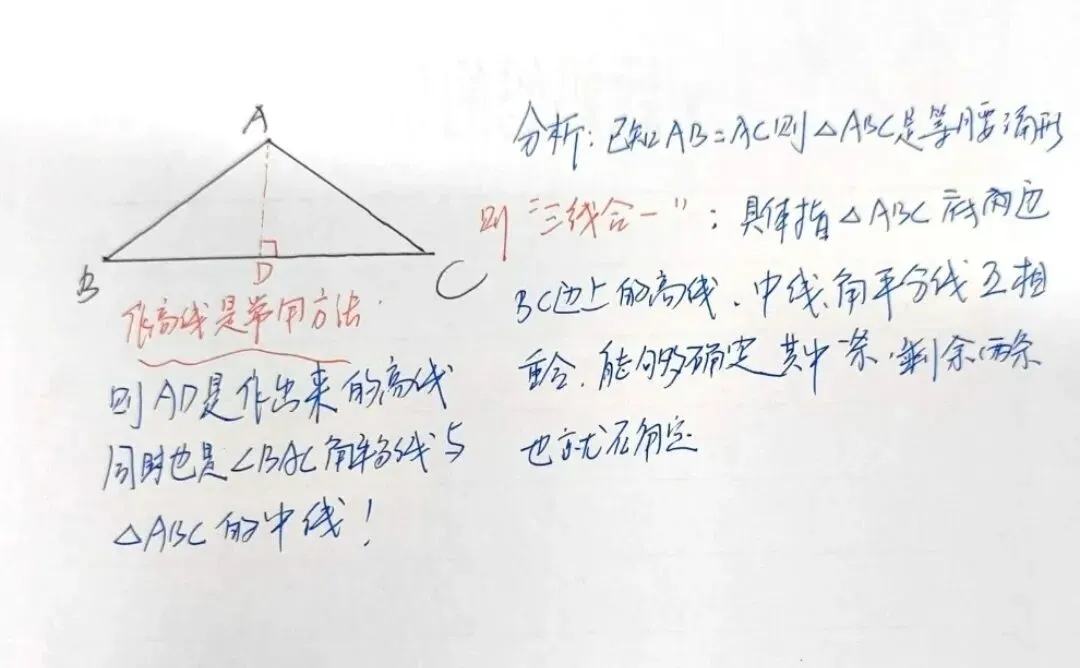 A
B
D
C
作高线是常用方法.
则AD是作出来的高线
同时也是∠BAC角平分线与
△ABC的中线!
分析:已知AB=AC则△ABC是等腰三角形
则"三线合一":具体指△ABC 两边
BC边上的高线、中线、角平分线互相
重合.能够确定其中一条,剩余两条
也就 确定